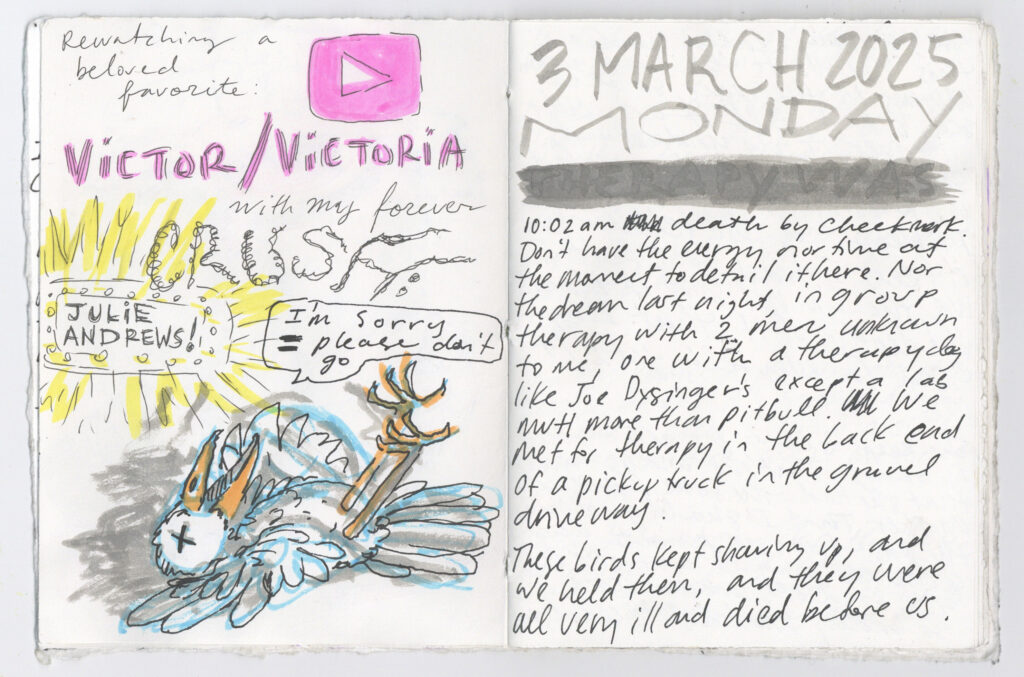 Rewatching a
beloved
favorite:
VICTOR/VICTORIA
with my forever
CRUSH
JULIE
ANDREWS!
I'm sorry
please don't
go
3 MARCH 2025
MONDAY
THERAPY WAS
10:02 am death by checkmark.
Don't have the energy nor time at
the moment to detail it here. Nor
the dream last night, in group
therapy with 2 men unknown
to me, one with a therapy dog
like Joe Dysinger's except a lab
mutt more than pitbull. We
met for therapy in the back end
of a pickup truck in the gravel
driveway.
These birds kept showing up, and
we held them, and they were
all very ill and died before us.